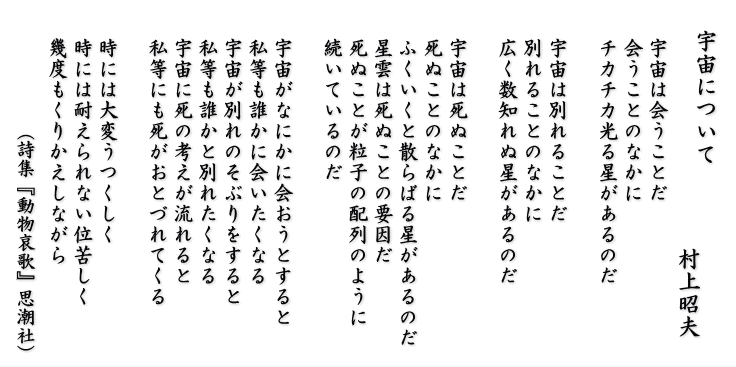 宇宙について
村上昭夫
宇宙は会うことだ
会うことのなかに
チカチカ光る星があるのだ
宇宙は別れることだ
別れることのなかに
広く数知れぬ星があるのだ
宇宙は死ぬことだ
死ぬことのなかに
ふくいくと散らばる星があるのだ
星雲は死ぬことの要因だ
死ぬことが粒子の配列のように
続いているのだ
宇宙がなにかに会おうとすると
私等も誰かに会いたくなる
宇宙が別れのそぶりをすると
私等も誰かと別れたくなる
宇宙に死の考えが流れると
私等にも死がおとづれてくる
時には大変うつくしく
時には耐えられない位苦しく
幾度もくりかえしながら
（詩集『動物哀歌』思潮社）